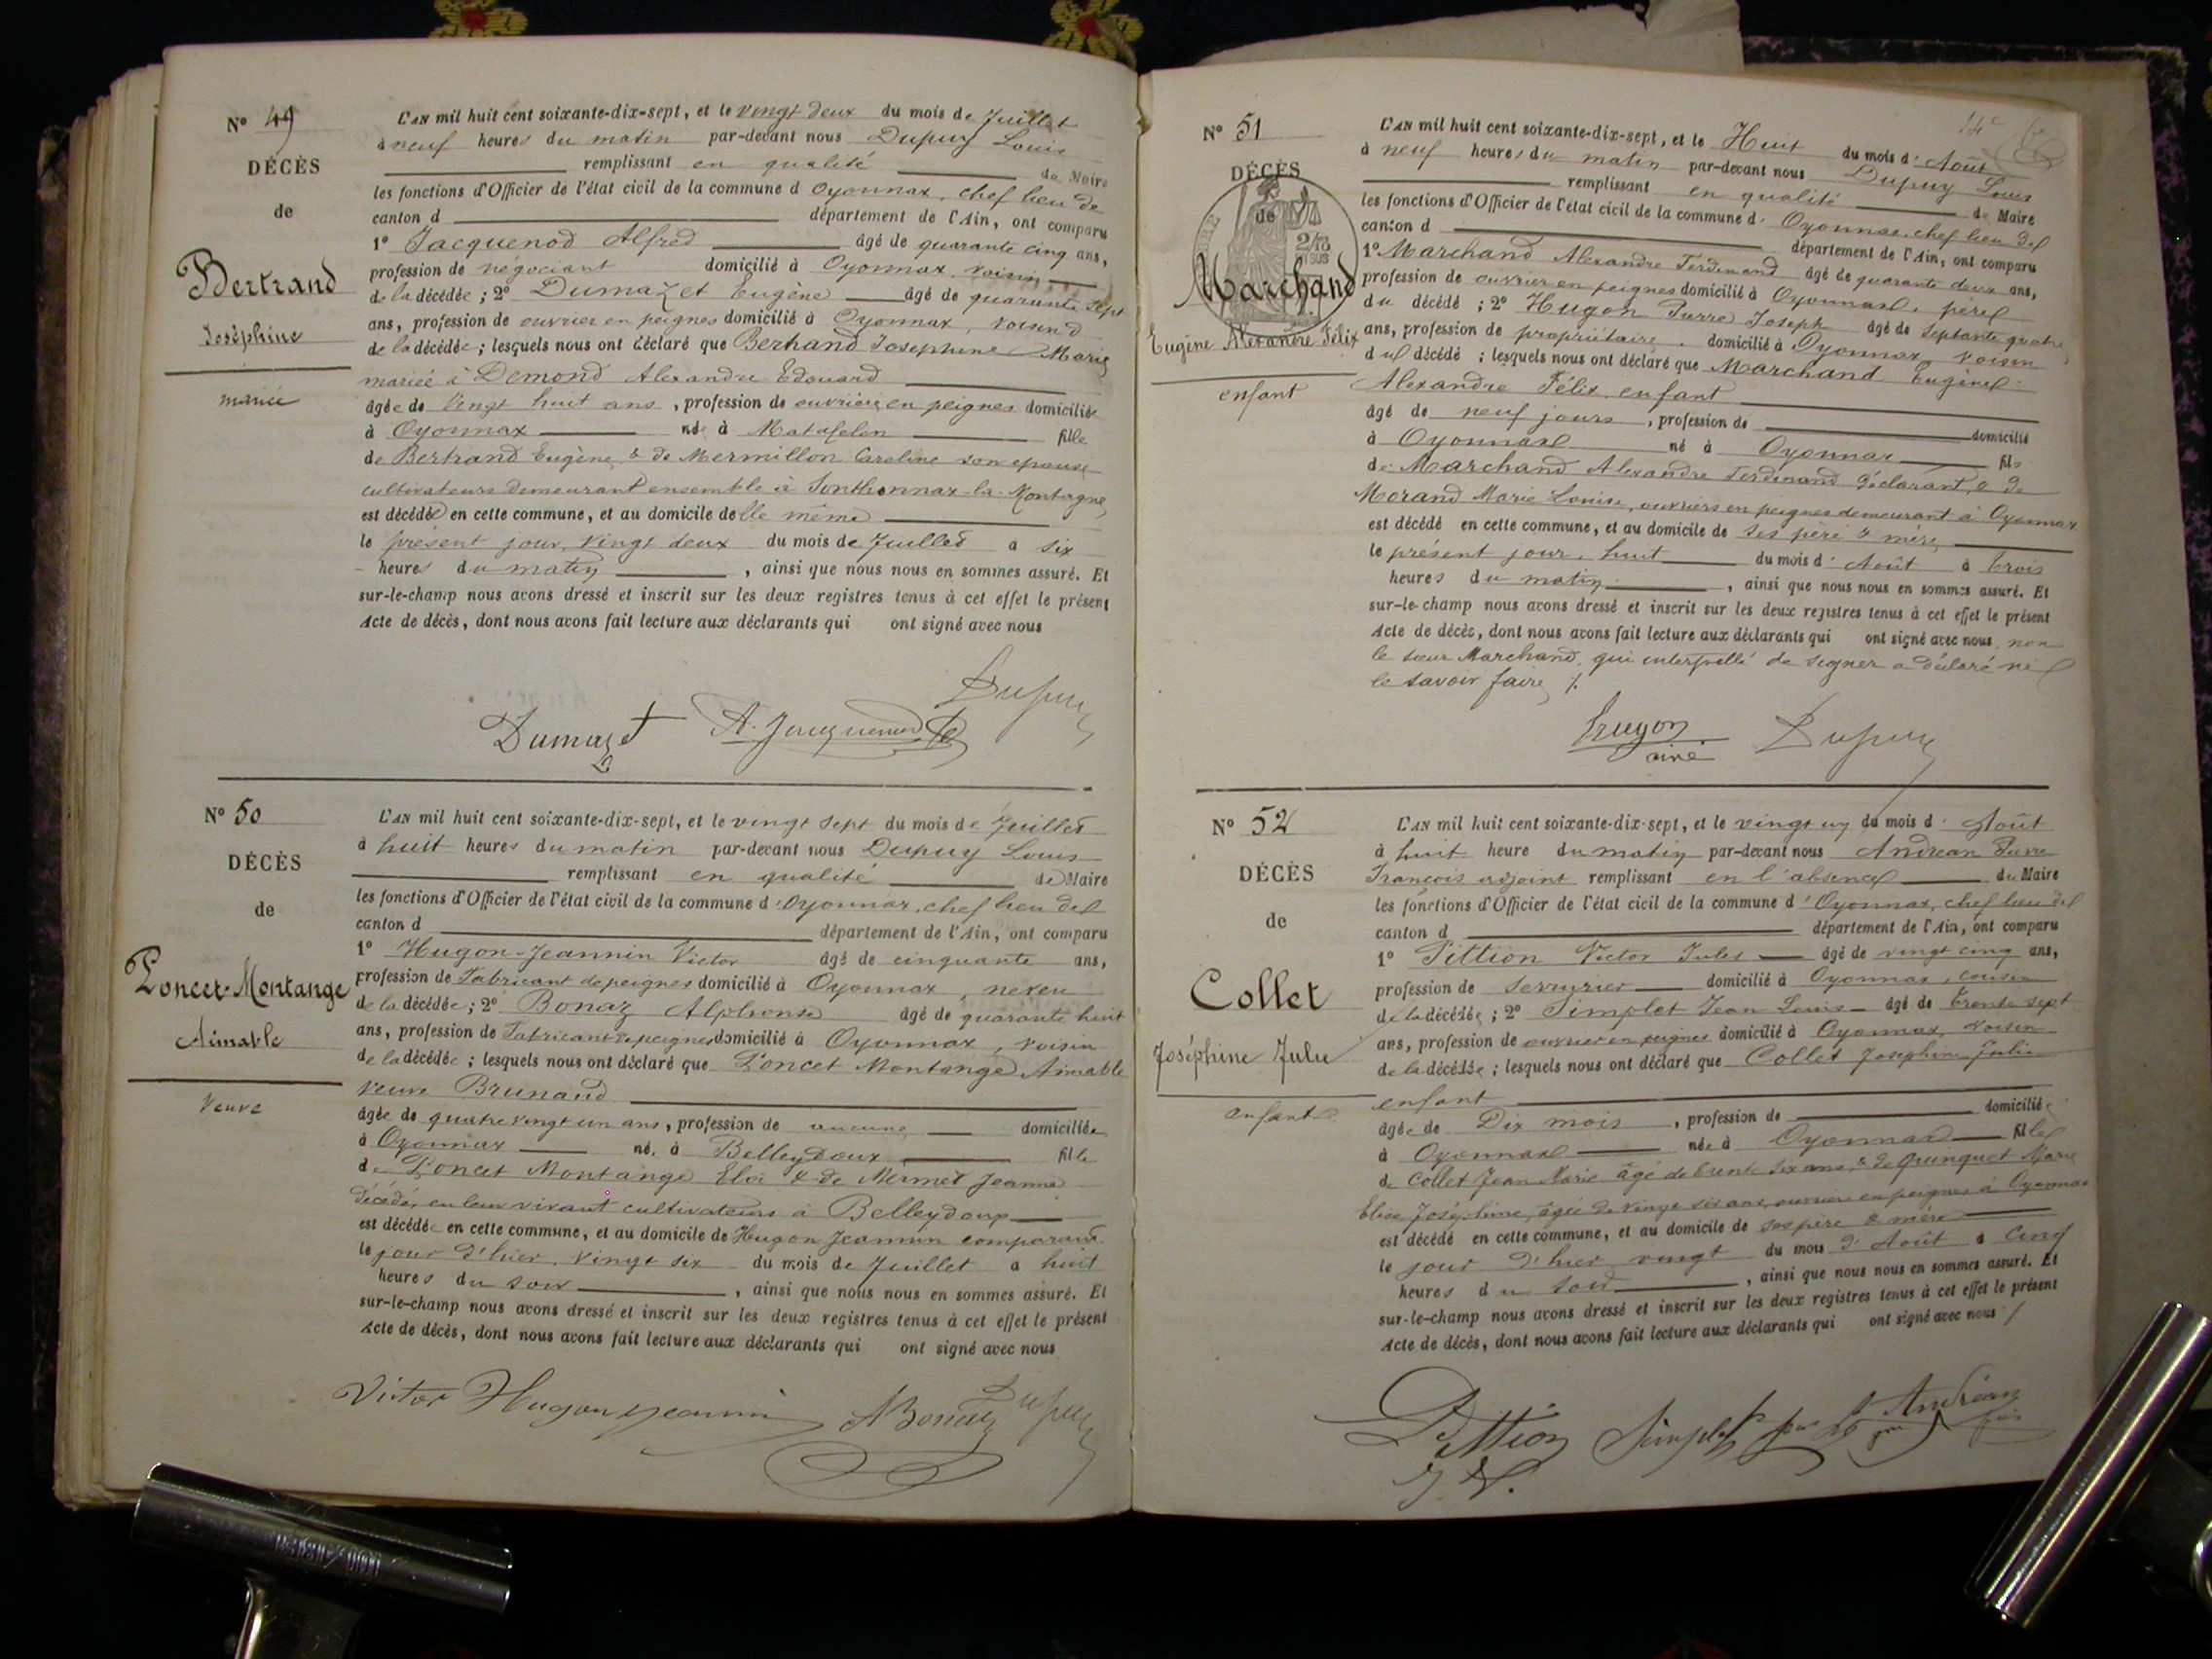 Nº 49
DÉCÈS
de
Bertrand
Joséphine
mariée
L'AN mil huit cent soixante-dix-sept, et le vingt deux du mois de Juillet
à neuf heures du matin par-devant nous Dupuy Louis
remplissant en qualité de Maire
les fonctions d'Officier de l'état civil de la commune d Oyonnax, chef lieu de
canton d département de l'Ain, ont comparu
1º Jacquenod Alfred âgé de quarante cinq ans,
profession de négociant domicilié à Oyonnax, voisin
de la décédée ; 2º Dumazet Eugène âgé de quarante sept
ans, profession de ouvrier en peignes domicilié à Oyonnax, voisin
de la décédée ; lesquels nous ont déclaré que Bertrand Joséphine Marie
mariée à Demond Alexandre Edouard
âgée de vingt huit ans, profession de ouvrière en peignes domiciliée
à Oyonnax née à Matafelon fille
de Bertrand Eugène & de Mermillon Caroline son épouse
cultivateurs demeurant ensemble à Sonthonnax-la-Montagne,
est décédée en cette commune, et au domicile de elle même
le présent jour, vingt deux du mois de Juillet à six
heures du matin, ainsi que nous nous en sommes assuré. Et
sur-le-champ nous avons dressé et inscrit sur les deux registres tenus à cet effet le présent
Acte de décès, dont nous avons fait lecture aux déclarants qui ont signé avec nous
Dupuy
Dumazet A. Jacquenod
Nº 50
DÉCÈS
de
Poncet-Montange
Aimable
Veuve
L'AN mil huit cent soixante-dix-sept, et le vingt sept du mois de Juillet
à huit heures du matin par-devant nous Dupuy Louis
remplissant en qualité de Maire
les fonctions d'Officier de l'état civil de la commune d'Oyonnax, chef lieu de
canton d département de l'Ain, ont comparu
1º Hugon-Jeannin Victor âgé de cinquante ans,
profession de Fabricant de peignes domicilié à Oyonnax, neveu
de la décédée ; 2º Bonaz Alphonse âgé de quarante huit
ans, profession de Fabricant de peignes domicilié à Oyonnax, voisin
de la décédée ; lesquels nous ont déclaré que Poncet Montange Aimable
veuve Brunand
âgée de quatre vingt un ans, profession de aucune domiciliée
à Oyonnax née à Belleydoux fille
de Poncet Montange Eloi & de Mermet Jeanne
décédés, en leur vivant cultivateurs à Belleydoux
est décédée en cette commune, et au domicile de Hugon Jeannin comparant
le jour d'hier, vingt six du mois de Juillet à huit
heures du soir, ainsi que nous nous en sommes assuré. Et
sur-le-champ nous avons dressé et inscrit sur les deux registres tenus à cet effet le présent
Acte de décès, dont nous avons fait lecture aux déclarants qui ont signé avec nous
Victor Hugon Jeannin A Bonaz Dupuy
14e
Nº 51
DÉCÈS
de
Marchand
Eugène Alexandre Félix
enfant
L'AN mil huit cent soixante-dix-sept, et le Huit du mois d'Août
à neuf heures du matin par-devant nous Dupuy Louis
remplissant en qualité de Maire
les fonctions d'Officier de l'état civil de la commune d'Oyonnax, chef lieu de
canton d département de l'Ain, ont comparu
1º Marchand Alexandre Ferdinand âgé de quarante deux ans,
profession de ouvrier en peignes domicilié à Oyonnax, père
du décédé ; 2º Hugon Pierre Joseph âgé de septante quatre
ans, profession de propriétaire, domicilié à Oyonnax, voisin
du décédé ; lesquels nous ont déclaré que Marchand Eugène
Alexandre Félix, enfant
âgé de neuf jours, profession de domicilié
à Oyonnax né à Oyonnax fils
de Marchand Alexandre Ferdinand déclarant, & de
Morand Marie Louise, ouvriers en peignes demeurant à Oyonnax
est décédé en cette commune, et au domicile de ses père & mère
le présent jour, huit du mois d'Août à trois
heures du matin, ainsi que nous nous en sommes assuré. Et
sur-le-champ nous avons dressé et inscrit sur les deux registres tenus à cet effet le présent
Acte de décès, dont nous avons fait lecture aux déclarants qui ont signé avec nous, non
le sieur Marchand, qui interpellé de signer a déclaré ne
le savoir faire ./.
Hugon Dupuy
ainé
Nº 52
DÉCÈS
de
Collet
Joséphine Julie
enfant
L'AN mil huit cent soixante-dix-sept, et le vingt un du mois d'Août
à huit heure du matin par-devant nous Andréan Pierre
François adjoint remplissant en l'absence du Maire
les fonctions d'Officier de l'état civil de la commune d'Oyonnax, chef lieu de
canton d département de l'Ain, ont comparu
1º Pittion Victor Jules âgé de vingt cinq ans,
profession de Serrurier domicilié à Oyonnax, cousin
de la décédée ; 2º Simplet Jean Louis âgé de trente sept
ans, profession de ouvrier en peignes domicilié à Oyonnax, voisin
de la décédée ; lesquels nous ont déclaré que Collet Joséphine Julie
enfant
âgée de Dix mois, profession de domiciliée
à Oyonnax née à Oyonnax fille
de Collet Jean Marie âgé de trente six ans & de Grunquet Marie
Elise Joséphine, âgée de vingt six ans, ouvriers en peignes à Oyonnax
est décédé en cette commune, et au domicile de ses père & mère
le jour d'hier vingt du mois d'Août à Cinq
heures du soir, ainsi que nous nous en sommes assuré. Et
sur-le-champ nous avons dressé et inscrit sur les deux registres tenus à cet effet le présent
Acte de décès, dont nous avons fait lecture aux déclarants qui ont signé avec nous ./.
Pittion Simplet Andréan
J. V.